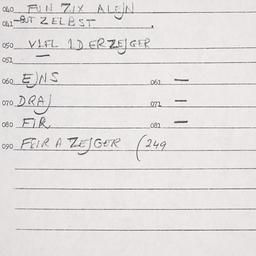 040 FUN ZIX ALEJN
041 BUT ZELBST
050 VIFL IDERZEJGER
051 —
060 EJNS 061 —
070 DRAJ 071 —
080 FIR 081 —
090 FEIR A ZEJGER (249